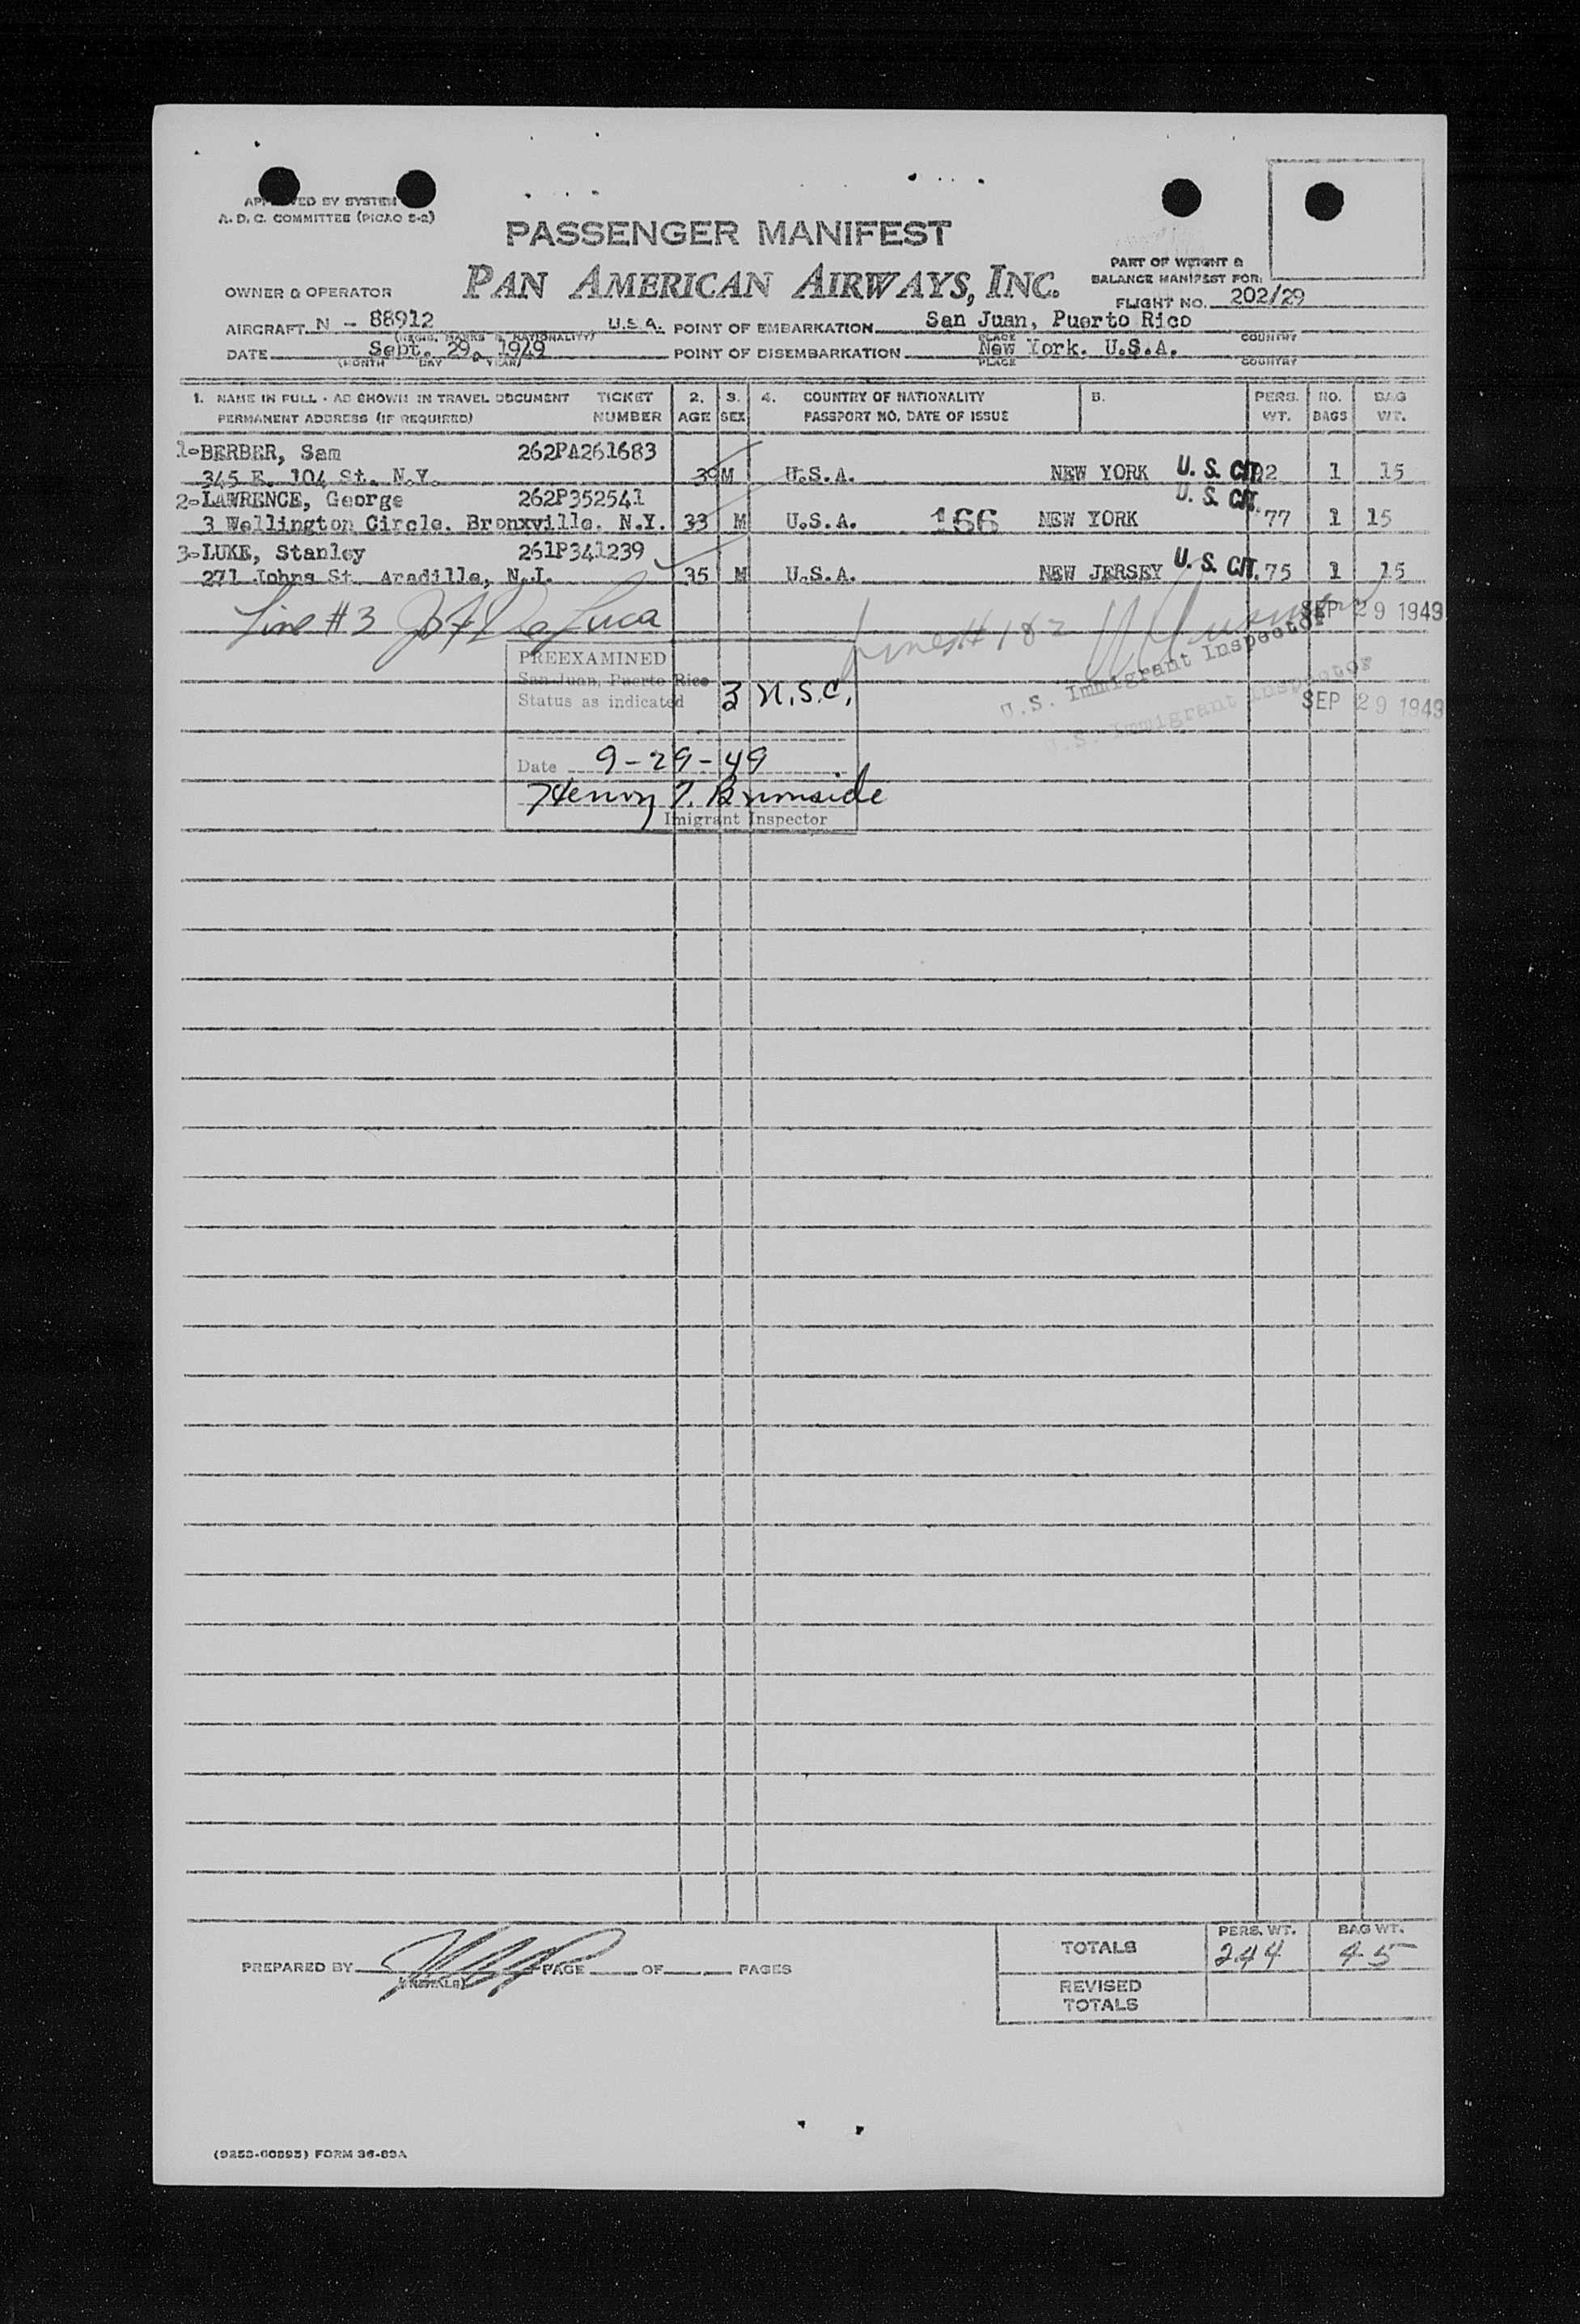 APPROVED BY SYSTEM
A. D. C. COMMITTEE (PICAO S-2)
PASSENGER MANIFEST
PAN AMERICAN AIRWAYS, INC.
PART OF WEIGHT &
BALANCE MANIFEST FOR:
OWNER & OPERATOR
FLIGHT NO. 202/29
AIRCRAFT N - 88912 U.S.A. POINT OF EMBARKATION San Juan, Puerto Rico
(REGIS. MARKS & NATIONALITY) PLACE COUNTRY
DATE Sept. 29, 1949 POINT OF DISEMBARKATION New York. U.S.A.
(MONTH DAY YEAR) PLACE COUNTRY
1. NAME IN FULL - AS SHOWN IN TRAVEL DOCUMENT TICKET 2. 3. 4. COUNTRY OF NATIONALITY 5. PERS. NO. BAG
PERMANENT ADDRESS (IF REQUIRED) NUMBER AGE SEX PASSPORT NO. DATE OF ISSUE WT. BAGS WT.
1-BERBER, Sam 262PA261683
345 E. 104 St. N.Y. 39 M U.S.A. NEW YORK U. S. CIT. 92 1 15
2-LAWRENCE, George 262P352541 U. S. CIT.
3 Wellington Circle. Bronxville. N.Y. 33 M U.S.A. 166 NEW YORK 77 1 15
3-LUKE, Stanley 261P341239
271 Johns St. Aradille, N.J. 35 M U.S.A. NEW JERSEY U. S. CIT. 75 1 15
Line #3 SEP 29 1949
U.S. Immigrant Inspector
PREEXAMINED
San Juan, Puerto Rico
Status as indicated 3 U.S.C.
U.S. Immigrant Inspector SEP 29 1949
Date 9-29-49
Henry T. Burnside
Imigrant Inspector
TOTALS PERS. WT. 244 BAG WT. 45
PREPARED BY (INITIALS) PAGE OF PAGES
REVISED
TOTALS
(9253-60895) FORM 36-83A